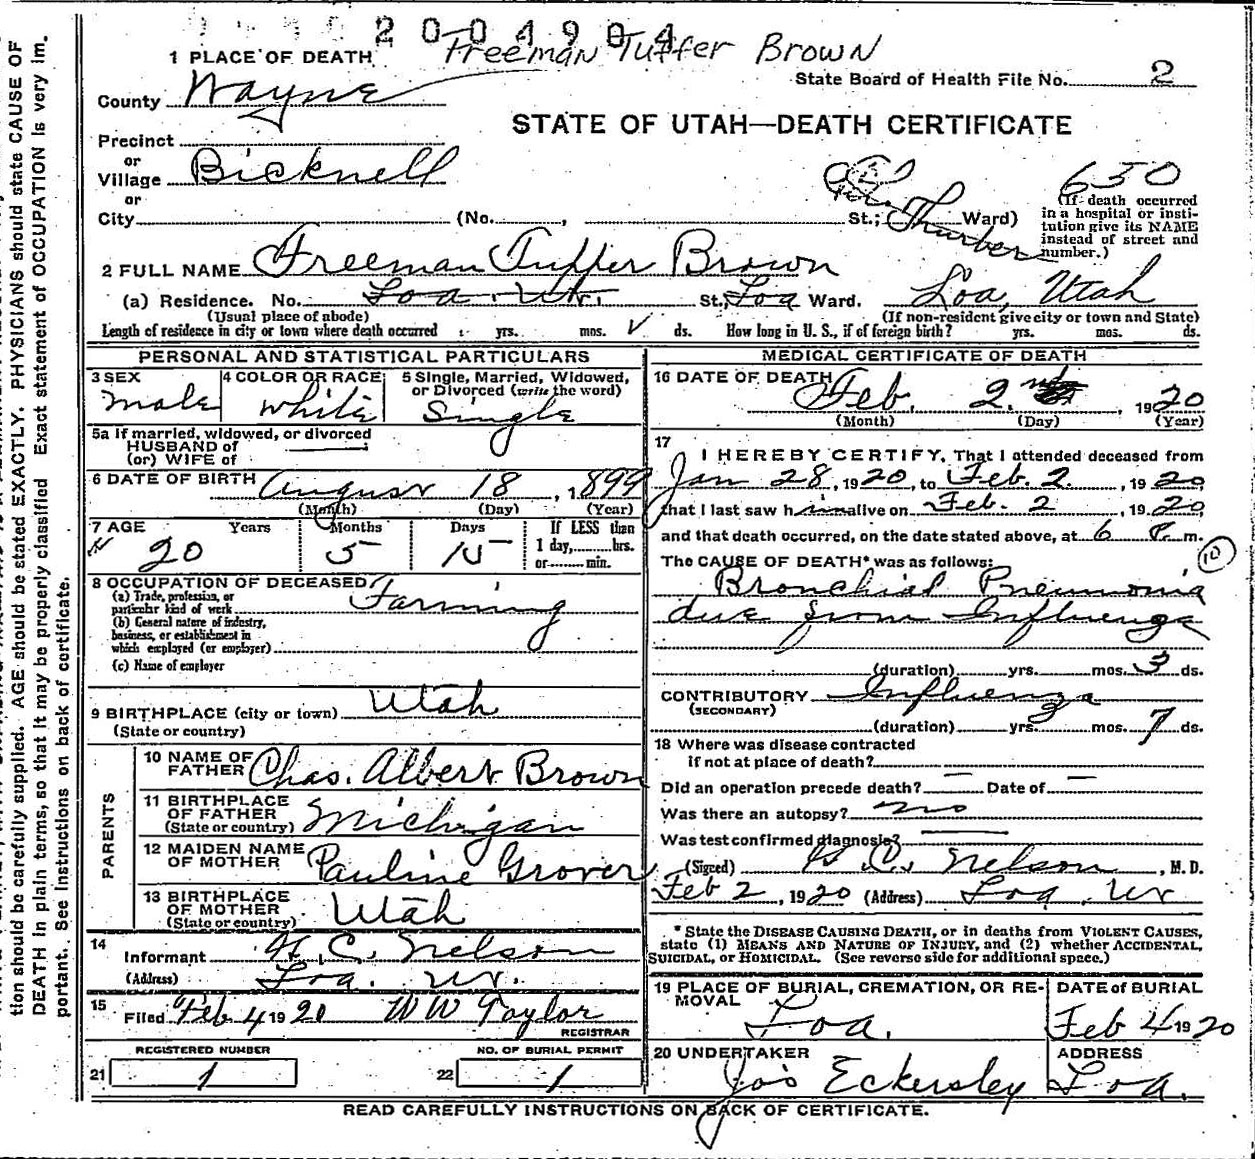 2004904
Freeman Tuffer Brown
1 PLACE OF DEATH
State Board of Health File No. 2
County Wayne
STATE OF UTAH—DEATH CERTIFICATE
Precinct
or
Village Bicknell
or
City (No. , St.; Thurber Ward)
650
(If death occurred in a hospital or institution give its NAME instead of street and number.)
2 FULL NAME Freeman Tuffer Brown
(a) Residence. No. Loa. Ut. St., Loa Ward. Loa, Utah
(Usual place of abode) (If non-resident give city or town and State)
Length of residence in city or town where death occurred yrs. mos. ds. How long in U. S., if of foreign birth? yrs. mos. ds.
PERSONAL AND STATISTICAL PARTICULARS
3 SEX
male
4 COLOR OR RACE
white
5 Single, Married, Widowed, or Divorced (write the word)
Single
5a If married, widowed, or divorced
HUSBAND of
(or) WIFE of
6 DATE OF BIRTH August 18, 1899
(Month) (Day) (Year)
7 AGE Years Months Days If LESS than
20 5 15 1 day, hrs.
or min.
8 OCCUPATION OF DECEASED
(a) Trade, profession, or particular kind of work Farming
(b) General nature of industry, business, or establishment in which employed (or employer)
(c) Name of employer
9 BIRTHPLACE (city or town) Utah
(State or country)
PARENTS
10 NAME OF FATHER Chas. Albert Brown
11 BIRTHPLACE OF FATHER (State or country) Michigan
12 MAIDEN NAME OF MOTHER Pauline Grover
13 BIRTHPLACE OF MOTHER (State or country) Utah
14 Informant H. C. Nelson
(Address) Loa. Ut.
15 Filed Feb 4 1920 W W Taylor
REGISTRAR
REGISTERED NUMBER
21 1
NO. OF BURIAL PERMIT
22 1
MEDICAL CERTIFICATE OF DEATH
16 DATE OF DEATH Feb. 2nd, 1920
(Month) (Day) (Year)
17 I HEREBY CERTIFY, That I attended deceased from
Jan 28, 1920, to Feb. 2, 1920
that I last saw him alive on Feb. 2, 1920
and that death occurred, on the date stated above, at 6 P. m.
The CAUSE OF DEATH* was as follows: 10
Bronchial Pneumonia
due from Influenza
(duration) yrs. mos. 3 ds.
CONTRIBUTORY Influenza
(SECONDARY)
(duration) yrs. mos. 7 ds.
18 Where was disease contracted
if not at place of death?
Did an operation precede death? — Date of —
Was there an autopsy? no
Was test confirmed diagnosis?
(Signed) H. C. Nelson, M. D.
Feb 2, 1920 (Address) Loa, Ut
* State the DISEASE CAUSING DEATH, or in deaths from VIOLENT CAUSES,
state (1) MEANS AND NATURE OF INJURY, and (2) whether ACCIDENTAL,
SUICIDAL, or HOMICIDAL. (See reverse side for additional space.)
19 PLACE OF BURIAL, CREMATION, OR REMOVAL
Loa.
DATE OF BURIAL
Feb 4 1920
20 UNDERTAKER
Jos Eckersley
ADDRESS
Loa.
READ CAREFULLY INSTRUCTIONS ON BACK OF CERTIFICATE.
tion should be carefully supplied. AGE should be stated EXACTLY. PHYSICIANS should state CAUSE OF
DEATH in plain terms, so that it may be properly classified. Exact statement of OCCUPATION is very im.
portant. See instructions on back of certificate.